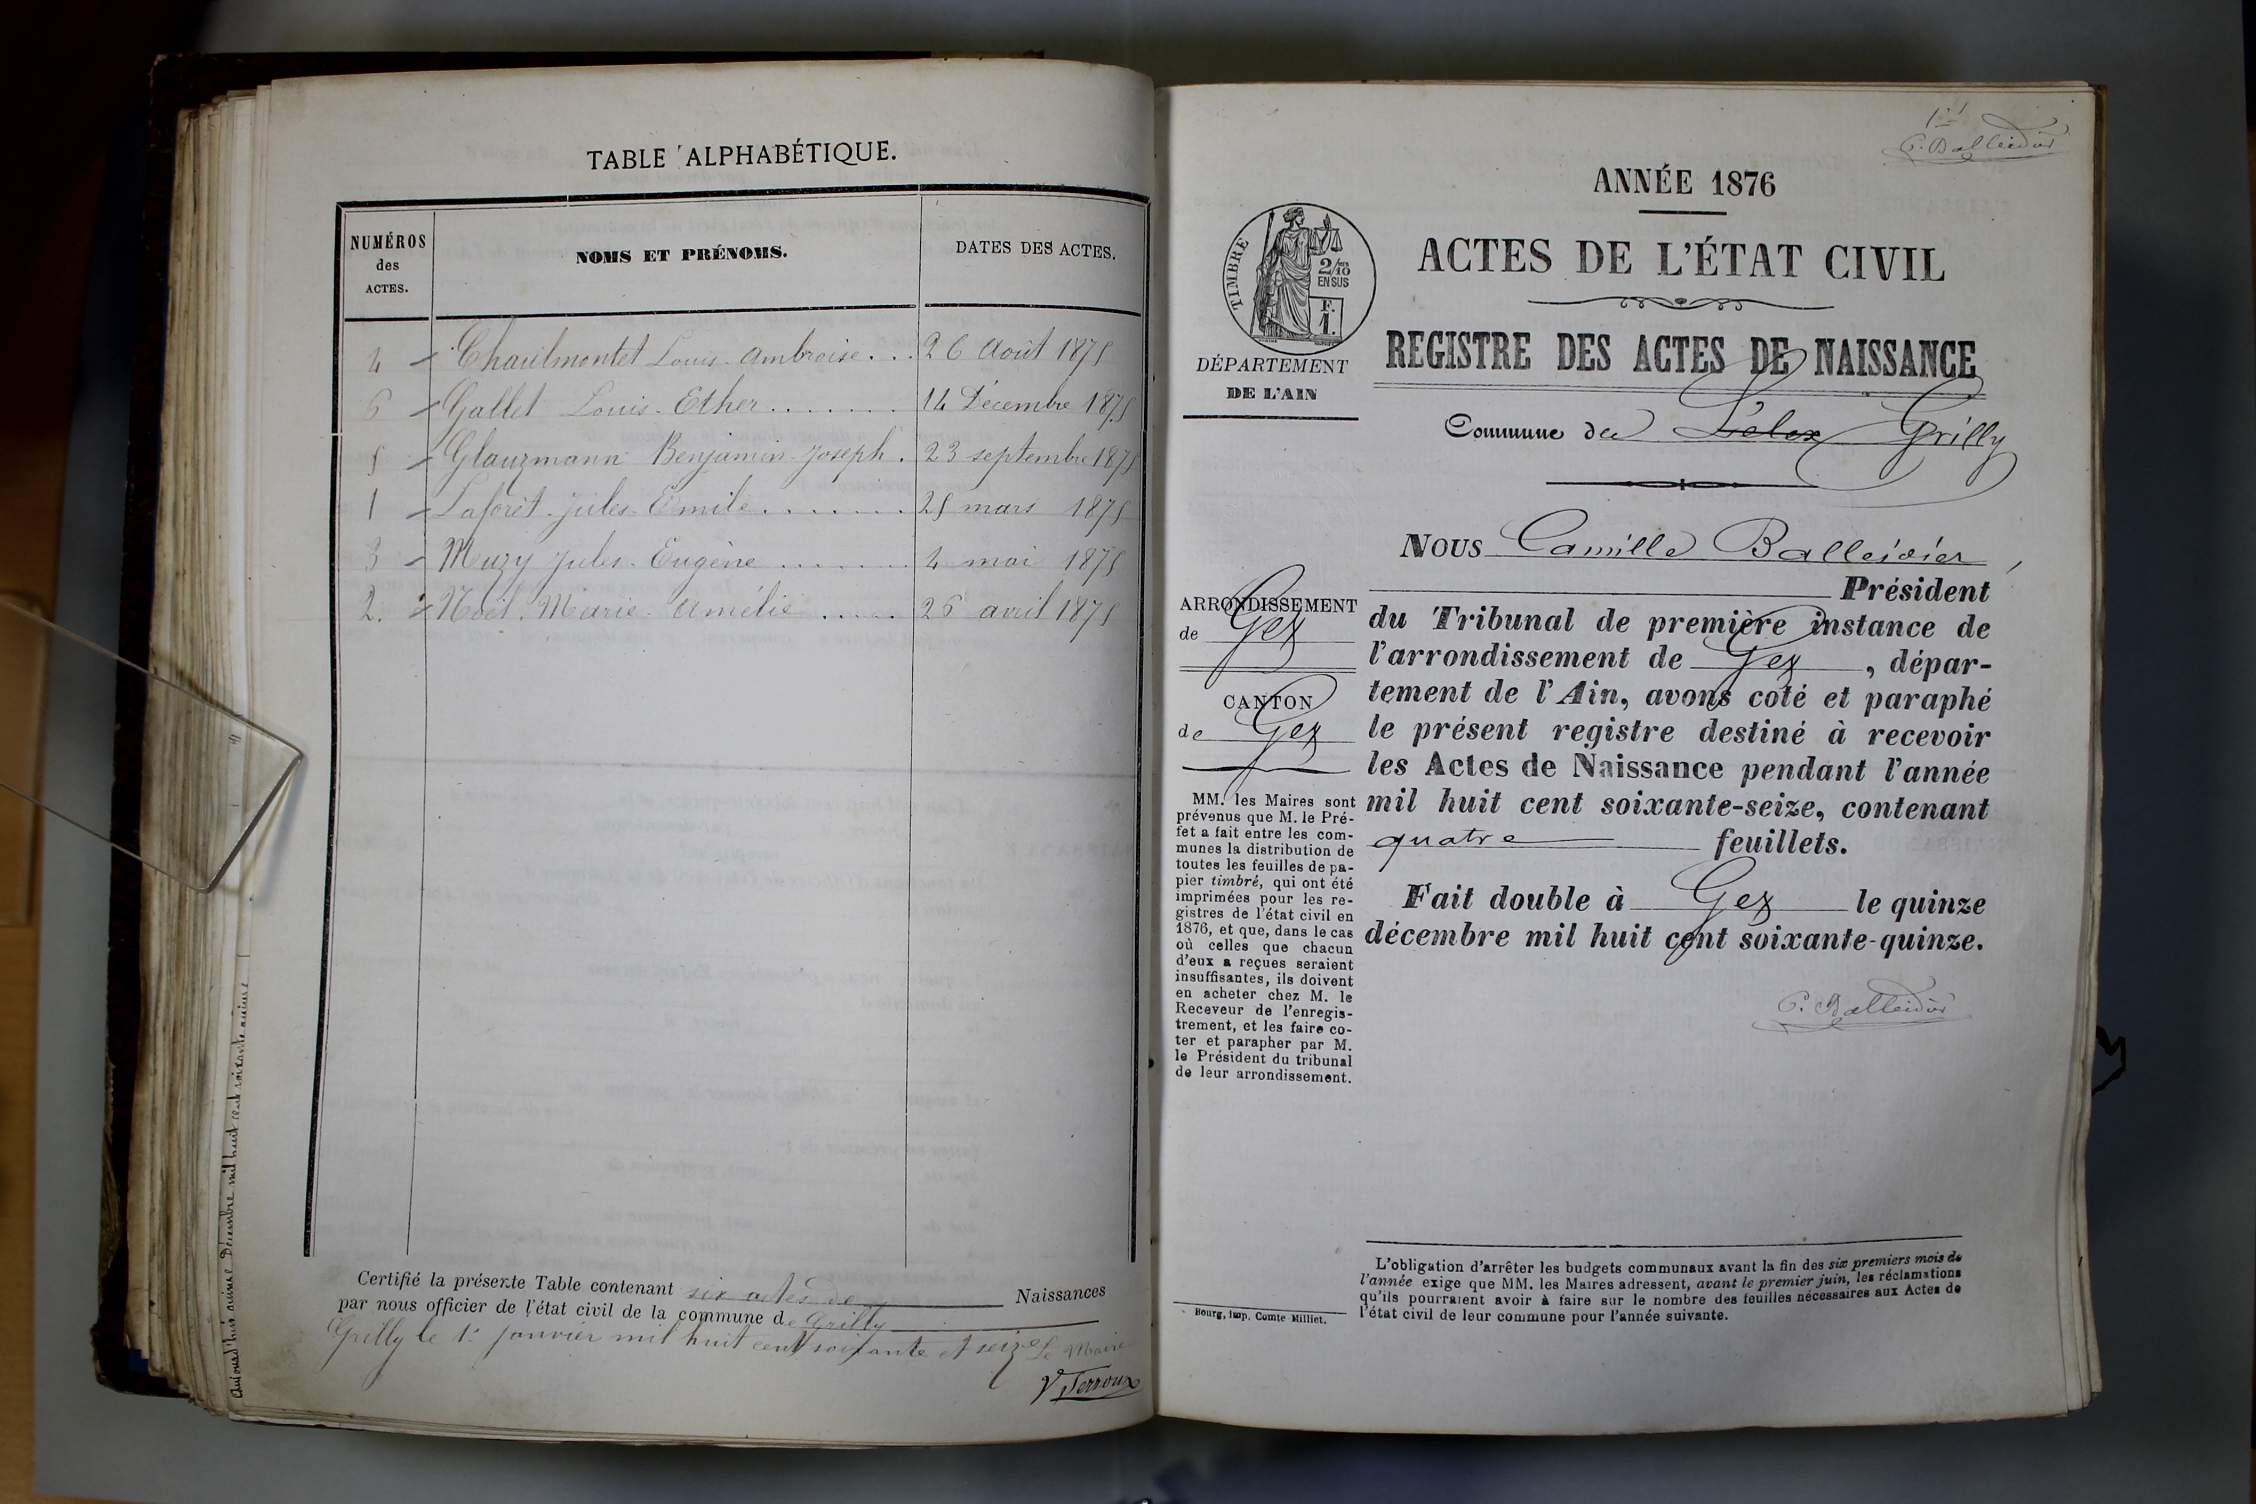 TABLE ALPHABÉTIQUE.
NUMÉROS
des
ACTES.
NOMS ET PRÉNOMS.
DATES DES ACTES.
4 Chaulmontet Louis Ambroise... 26 Août 1875
6 Gallet Louis Ether....... 14 Décembre 1875
5 Glauzmann Benjamin Joseph. 23 septembre 1875
1 Laforêt Jules Emile....... 25 mars 1875
3 Muzy Jules Eugène....... 4 mai 1875
2. Noël Marie Amélie..... 26 avril 1875
Certifié la présente Table contenant six actes de Naissances
par nous officier de l'état civil de la commune de Grilly
Grilly le 1er janvier mil huit cent soixante et seize Le Maire
aujourd'hui Décembre mil huit cent soixante quinze
1er
C. Balleidier
ANNÉE 1876
ACTES DE L'ÉTAT CIVIL
TIMBRE
2/10
EN SUS
F.
1.
DÉPARTEMENT
DE L'AIN
REGISTRE DES ACTES DE NAISSANCE
Commune de Lélex Grilly
NOUS Camille Balleidier,
Président
du Tribunal de première instance de
l'arrondissement de Gex, dépar-
tement de l'Ain, avons coté et paraphé
le présent registre destiné à recevoir
les Actes de Naissance pendant l'année
mil huit cent soixante-seize, contenant
quatre feuillets.
Fait double à Gex le quinze
décembre mil huit cent soixante-quinze.
C. Balleidier
ARRONDISSEMENT
de Gex
CANTON
de Gex
MM. les Maires sont
prévenus que M. le Pré-
fet a fait entre les com-
munes la distribution de
toutes les feuilles de pa-
pier timbré, qui ont été
imprimées pour les re-
gistres de l'état civil en
1876, et que, dans le cas
où celles que chacun
d'eux a reçues seraient
insuffisantes, ils doivent
en acheter chez M. le
Receveur de l'enregis-
trement, et les faire co-
ter et parapher par M.
le Président du tribunal
de leur arrondissement.
Bourg, imp. Comte Milliet.
L'obligation d'arrêter les budgets communaux avant la fin des six premiers mois de
l'année exige que MM. les Maires adressent, avant le premier juin, les réclamations
qu'ils pourraient avoir à faire sur le nombre des feuilles nécessaires aux Actes de
l'état civil de leur commune pour l'année suivante.